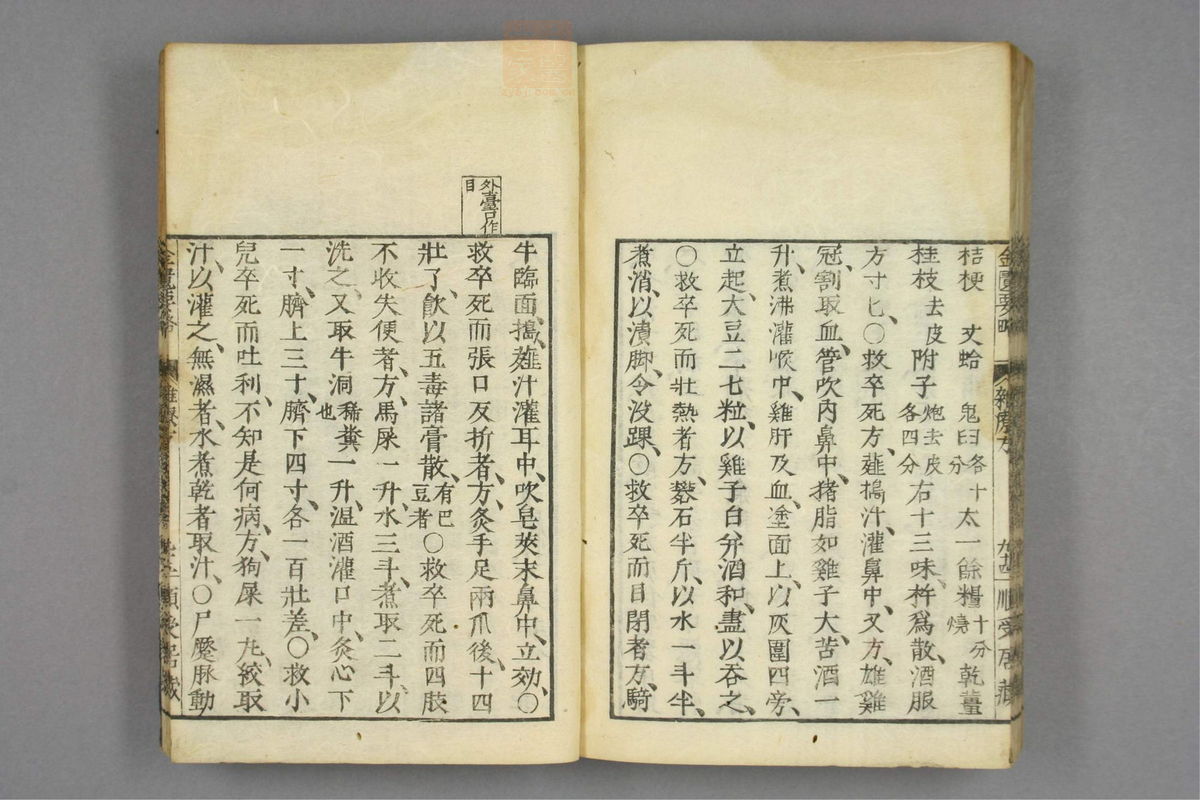 桔梗 文蛤 鬼臼各十分 太一餘糧十分燒 乾薑
桂枝去皮 附子炮去皮各四分 右十三味、杵爲散、酒服
方寸匕、〇救卒死方、薤搗汁、灌鼻中、又方、雄雞
冠割取血、管吹内鼻中、猪脂如雞子大、苦酒一
升、煮沸灌喉中、雞肝及血、塗面上、以灰圍四旁、
立起、大豆二七粒、以雞子白并酒和、盡以吞之、
〇救卒死而壯熱者方、礬石半斤、以水一斗半、
煮消、以漬脚、令沒踝、〇救卒死而目閉者方、騎
外臺口作目
牛臨面、搗薤汁灌耳中、吹皂莢末鼻中、立効、〇
救卒死而張口反折者、方、灸手足兩爪後、十四
壯了、飮以五毒諸膏散、有巴豆者〇救卒死而四肢
不收失便者、方、馬屎一升、水三斗、煮取二斗、以
洗之、又取牛洞稀糞也一升、温酒灌口中、灸心下
一寸、臍上三寸、臍下四寸、各一百壯差、〇救小
兒卒死而吐利、不知是何病、方、狗屎一丸、絞取
汁、以灌之、無濕者、水煮乾者取汁、〇尸蹷脉動
金匱要略 雜療方 順受居藏